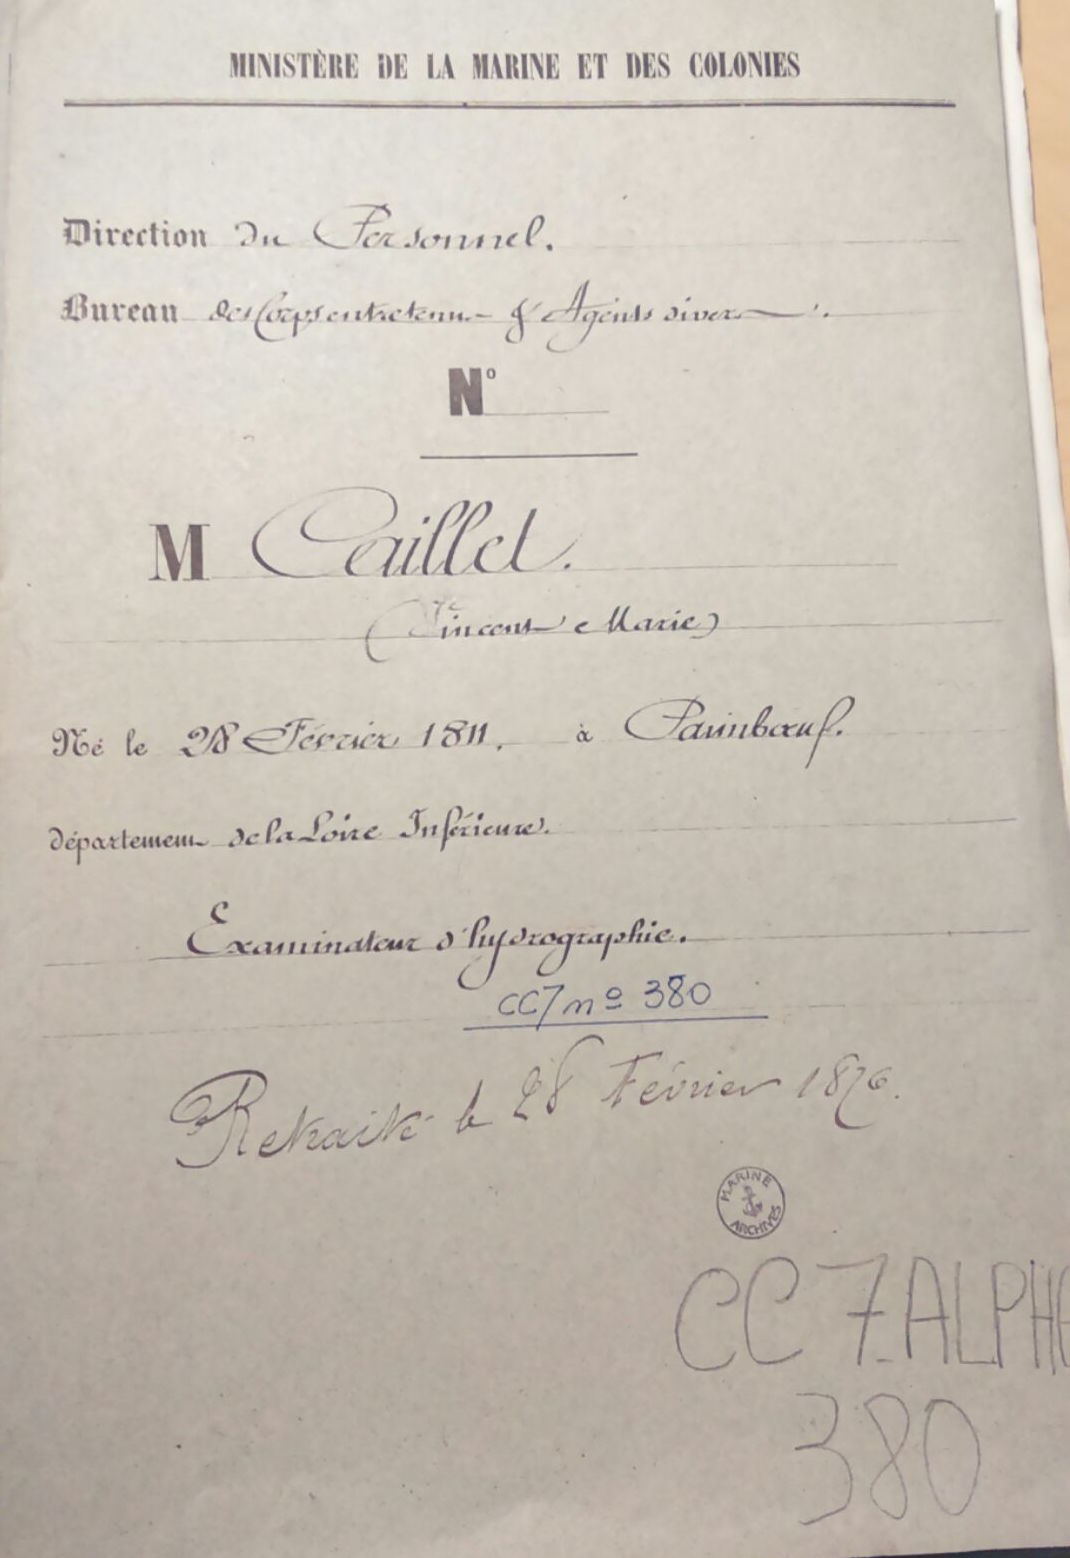 MINISTÈRE DE LA MARINE ET DES COLONIES
Direction du Personnel.
Bureau des Corps entretenus & Agents divers.
N°
M Caillet.
(Vincent Marie)
Né le 28 Février 1811, à Paimbœuf.
département de la Loire Inférieure.
Examinateur d'hydrographie.
CC7 nº 380
Retraité le 28 Février 1876.
MARINE
ARCHIVES
CC 7 ALPHA
380